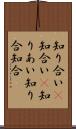 知り合い
知合い知
りあい知り
合知合